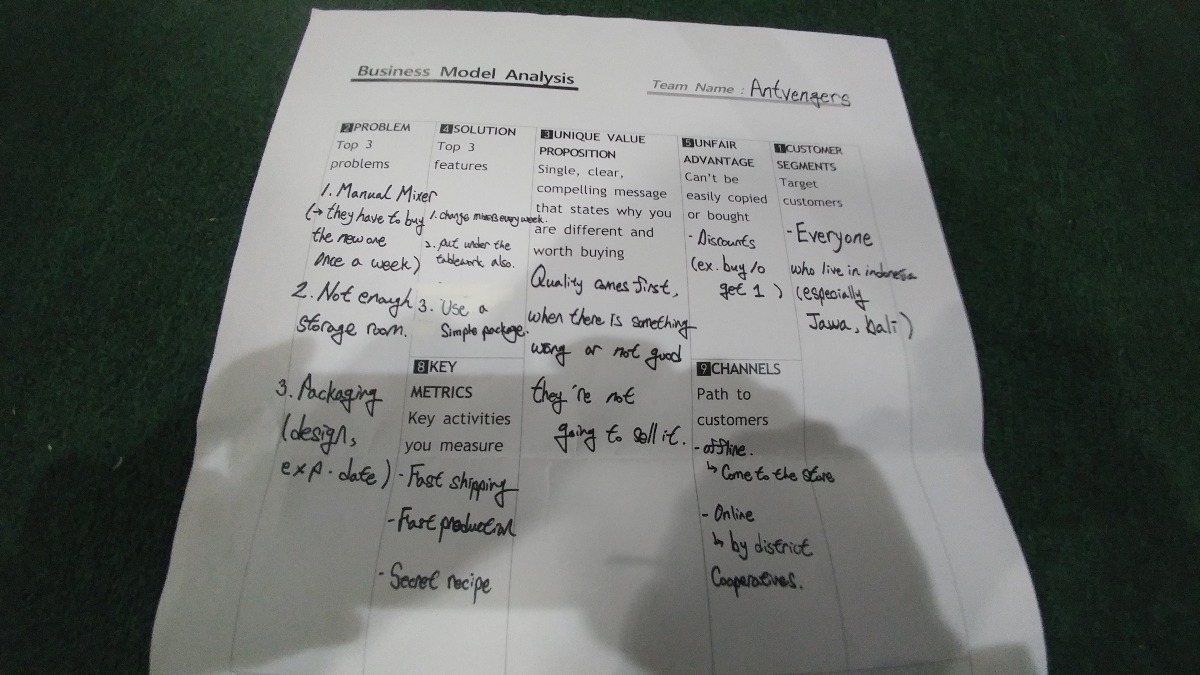 Business Model Analysis
Team Name : Antvengers
2 PROBLEM
Top 3
problems
1. Manual Mixer
(→ they have to buy
the new one
once a week)
2. Not enough
storage room.
3. Packaging
(design,
exp. date)
4 SOLUTION
Top 3
features
1. change mixers every week.
2. put under the
tablework also.
3. Use a
Simple package.
8 KEY
METRICS
Key activities
you measure
- Fast shipping
- Fast production
- Secret recipe
3 UNIQUE VALUE
PROPOSITION
Single, clear,
compelling message
that states why you
are different and
worth buying
Quality comes first,
when there is something
wrong or not good
they're not
going to sell it.
5 UNFAIR
ADVANTAGE
Can't be
easily copied
or bought
- Discounts
(ex. buy 10
get 1 )
9 CHANNELS
Path to
customers
- offline.
↳ Come to the store
- Online
↳ by district
Cooperatives.
1 CUSTOMER
SEGMENTS
Target
customers
- Everyone
who live in indonesia
(especially
Jawa, bali)